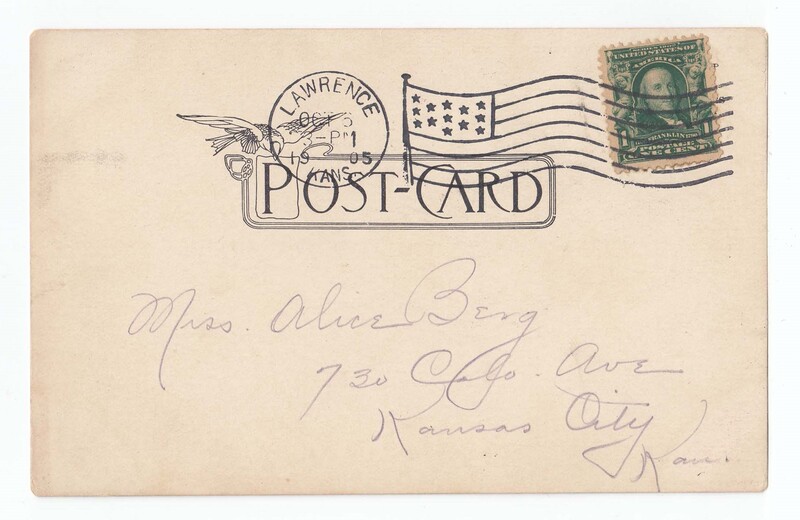 LAWRENCE
OCT 3
3-PM
1905
KANS.
SERIES 1902
UNITED STATES OF
AMERICA
1 FRANKLIN 1
POSTAGE
ONE CENT
POST-CARD
Miss. Alice Berg
730 Colo. Ave
Kansas City
Kan.